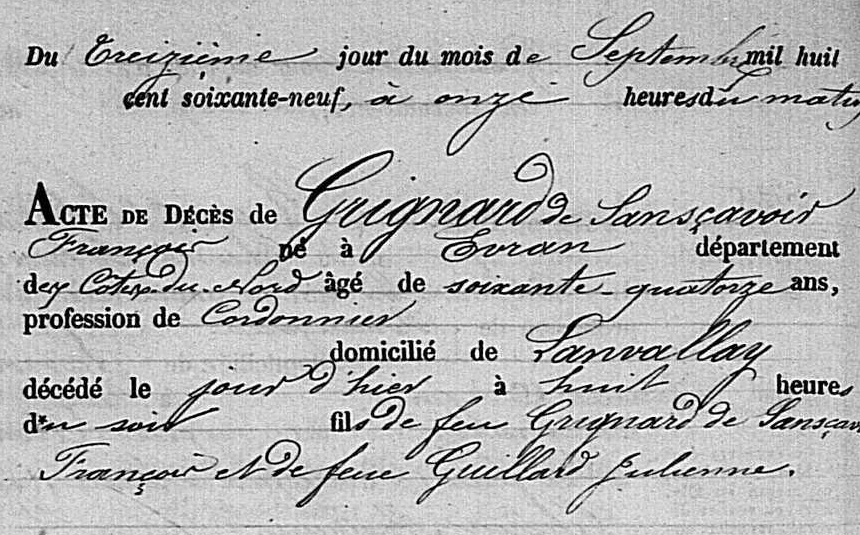 Du Treizième jour du mois de Septembre mil huit
cent soixante-neuf, à onze heures du matin
ACTE DE DÉCÈS de Grignard de Sansçavoir
François né à Evran département
des Côtes-du-Nord âgé de soixante-quatorze ans,
profession de Cordonnier
domicilié de Lanvallay
décédé le jour d'hier à huit heures
du soir fils de feu Grignard de Sansçav
François et de feue Guillard Julienne.